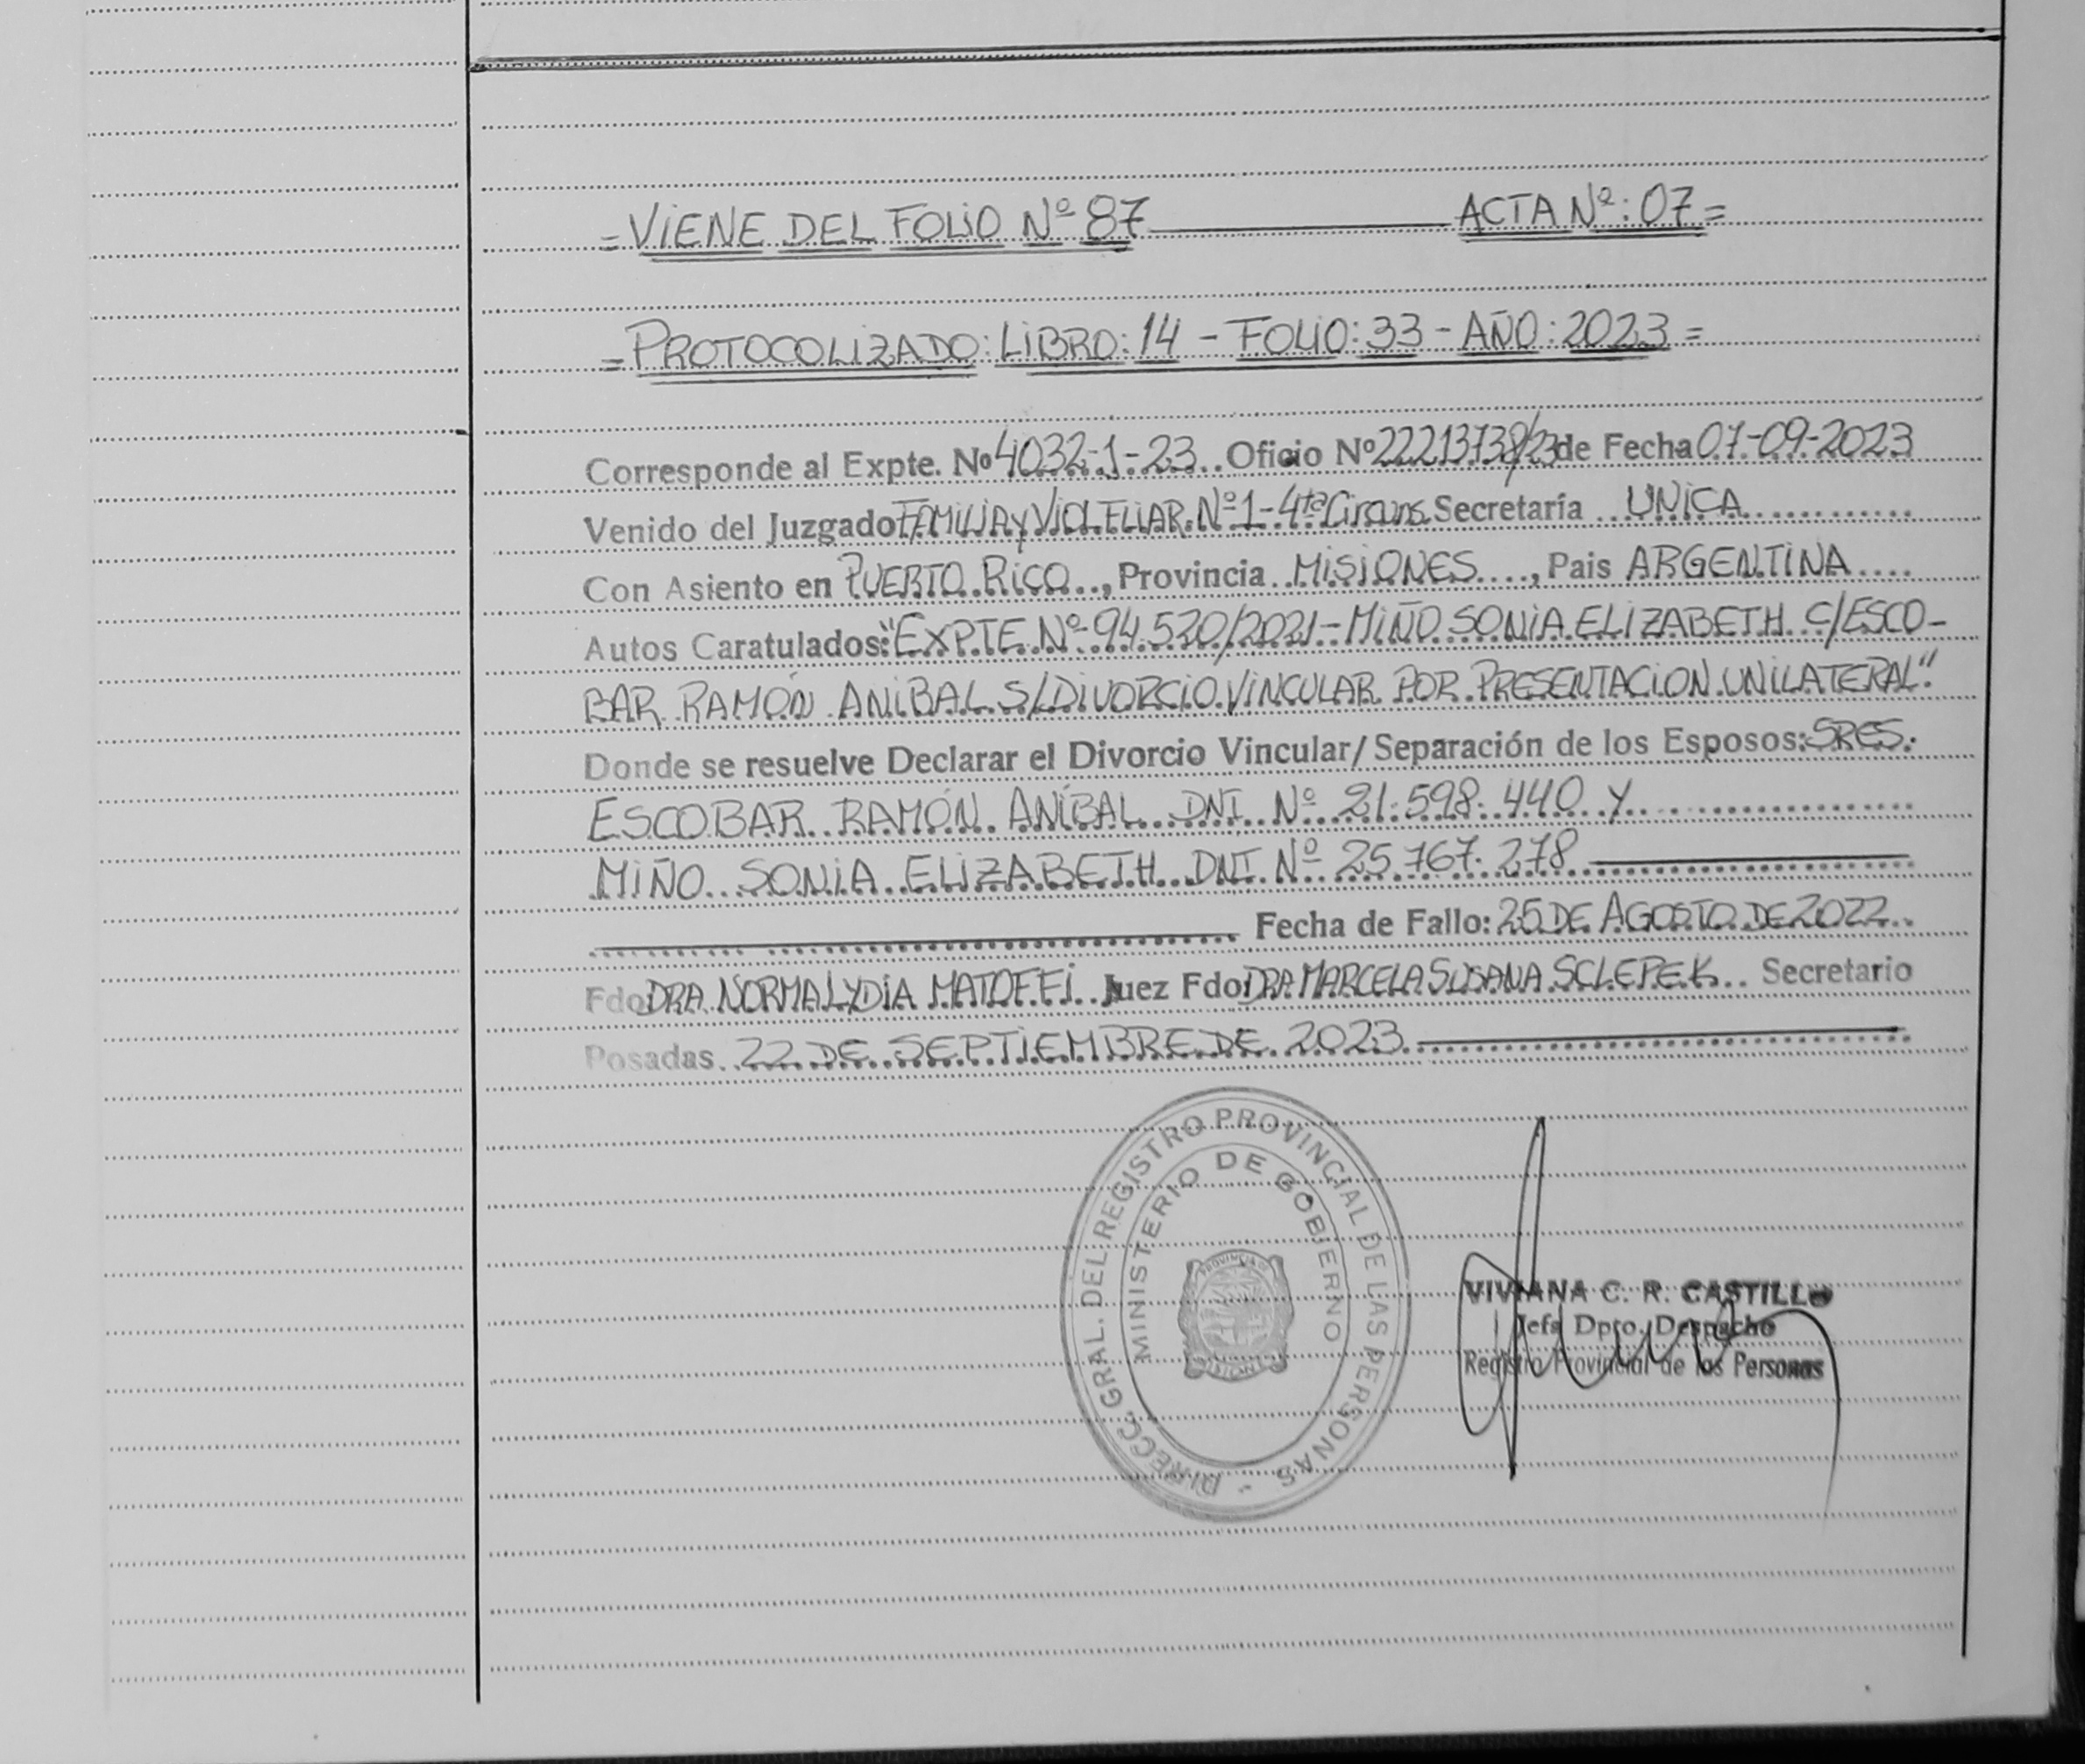 =VIENE DEL FOLIO Nº 87 ACTA Nº: 07=
=PROTOCOLIZADO: LIBRO: 14 - FOLIO: 33 - AÑO: 2023=
Corresponde al Expte. Nº 4032-1-23 Oficio Nº 22213738/23 de Fecha 07-09-2023
Venido del Juzgado FAMILIA y VIOL. FLIAR. Nº 1 - 4ta Circuns. Secretaría UNICA
Con Asiento en PUERTO RICO, Provincia MISIONES, Pais ARGENTINA
Autos Caratulados: "EXPTE. Nº 94.520/2021 - MIÑO SONIA ELIZABETH C/ESCO-
BAR RAMÓN ANIBAL S/DIVORCIO VINCULAR POR PRESENTACION UNILATERAL"
Donde se resuelve Declarar el Divorcio Vincular/Separación de los Esposos: SRES.
ESCOBAR RAMÓN ANÍBAL DNI Nº 21.598.440 Y
MIÑO SONIA ELIZABETH DNI Nº 25.767.278
Fecha de Fallo: 25 DE AGOSTO DE 2022
Fdo DRA. NORMA LYDIA MATOFFI Juez Fdo: DRA. MARCELA SUSANA SCLEPEK Secretario
Posadas 22 DE SEPTIEMBRE DE 2023
DIRECC. GRAL. DEL REGISTRO PROVINCIAL DE LAS PERSONAS
MINISTERIO DE GOBIERNO
PROVINCIA DE
MISIONES
VIVIANA C. R. CASTILLO
Jefa Dpto. Despacho
Registro Provincial de las Personas